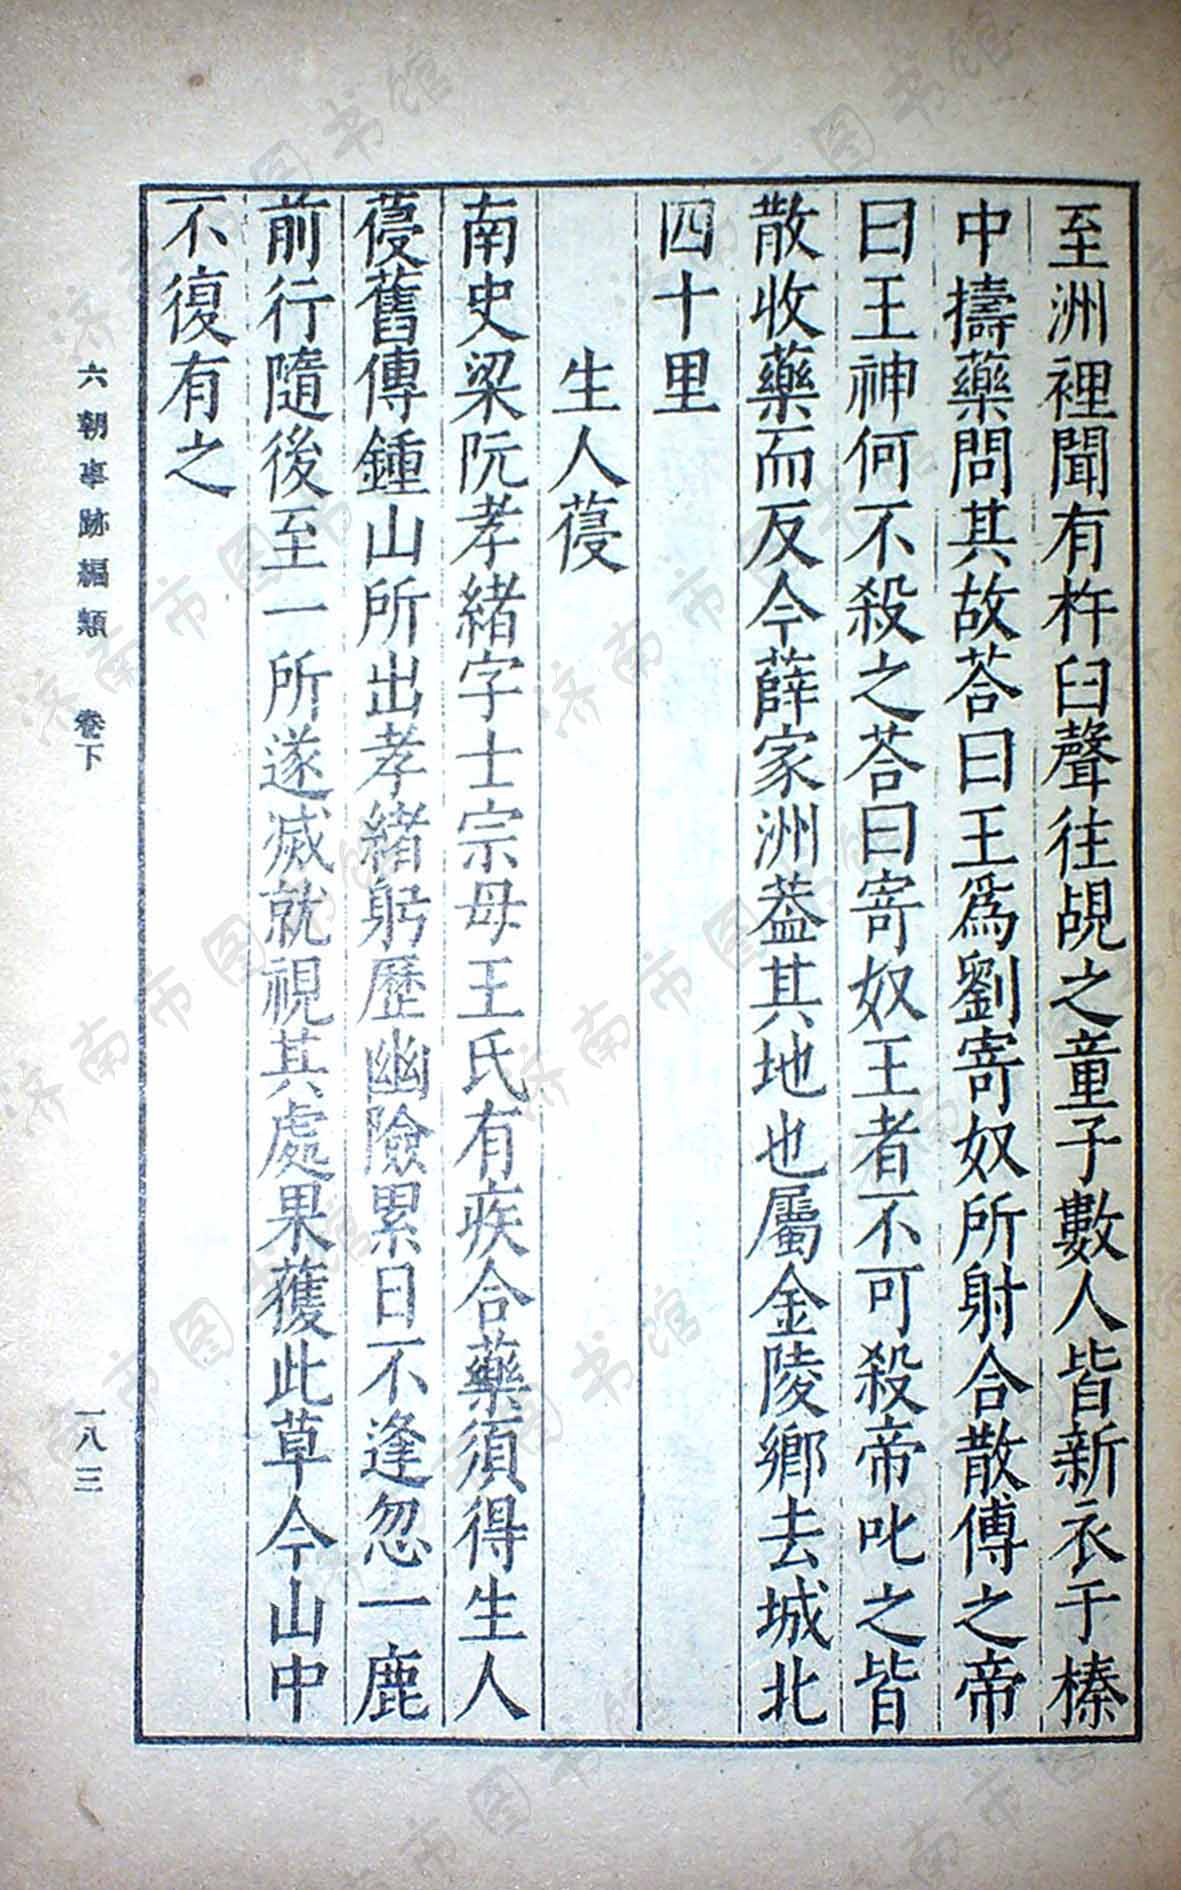 至洲裡聞有杵臼聲往覘之童子數人皆新衣于榛
中擣藥問其故荅曰王爲劉寄奴所射合散傅之帝
曰王神何不殺之荅曰寄奴王者不可殺帝叱之皆
散收藥而反今薛家洲葢其地也屬金陵鄉去城北
四十里
生人葠
南史梁阮孝緒字士宗母王氏有疾合藥須得生人
葠舊傳鍾山所出孝緒躬歷幽險累日不逢忽一鹿
前行隨後至一所遂滅就視其處果獲此草今山中
不復有之
六朝事跡編類 卷下
一八三
济南市图书馆